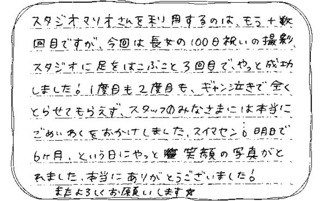 スタジオマリオさんを利用するのは、もう十数
回目ですが、今回は長女の100日祝いの撮影。
スタジオに足をはこぶこと3回目で、やっと成功
しました!1度目も2度目も、ギャン泣きで全く
とらせてもらえず、スタッフのみなさまには本当に
ごめいわくをおかけしました。スイマセン!明日で
6ヶ月、という日にやっと笑顔の写真がと
れました。本当にありがとうございました!
またよろしくお願いします☆